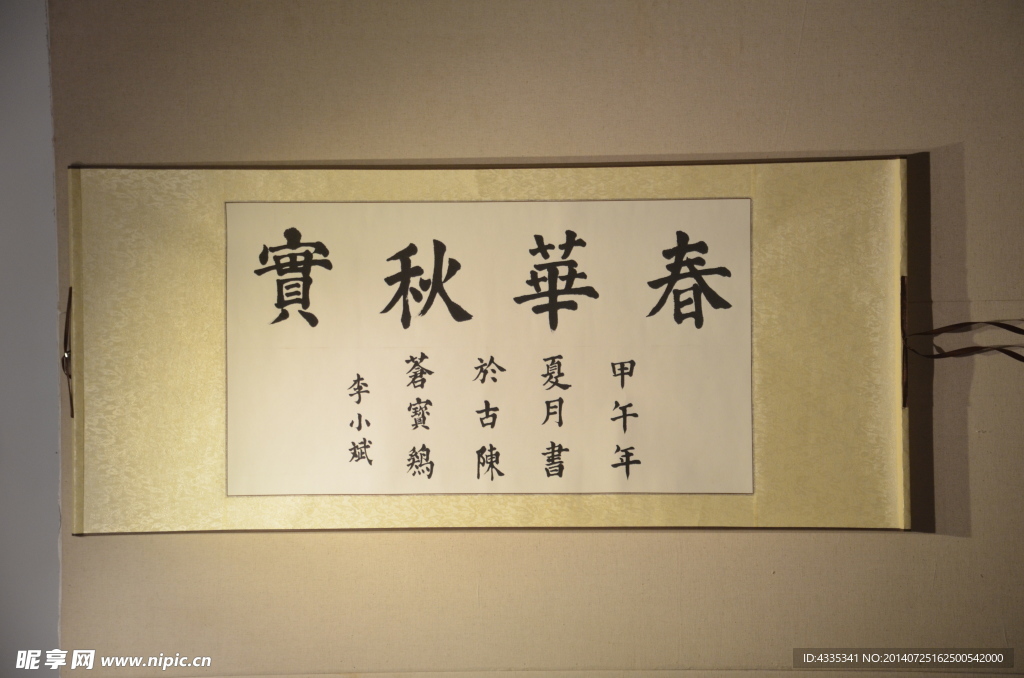 春華秋實
甲午年
夏月書
於古陳
蒼寶鷄
李小斌
昵享网 www.nipic.cn
ID:4335341 NO:20140725162500542000